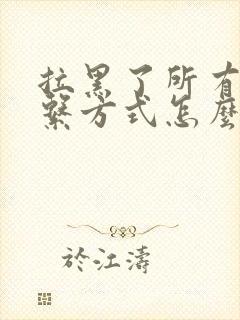 拉黑了所有
繫方式怎麼
於江濤